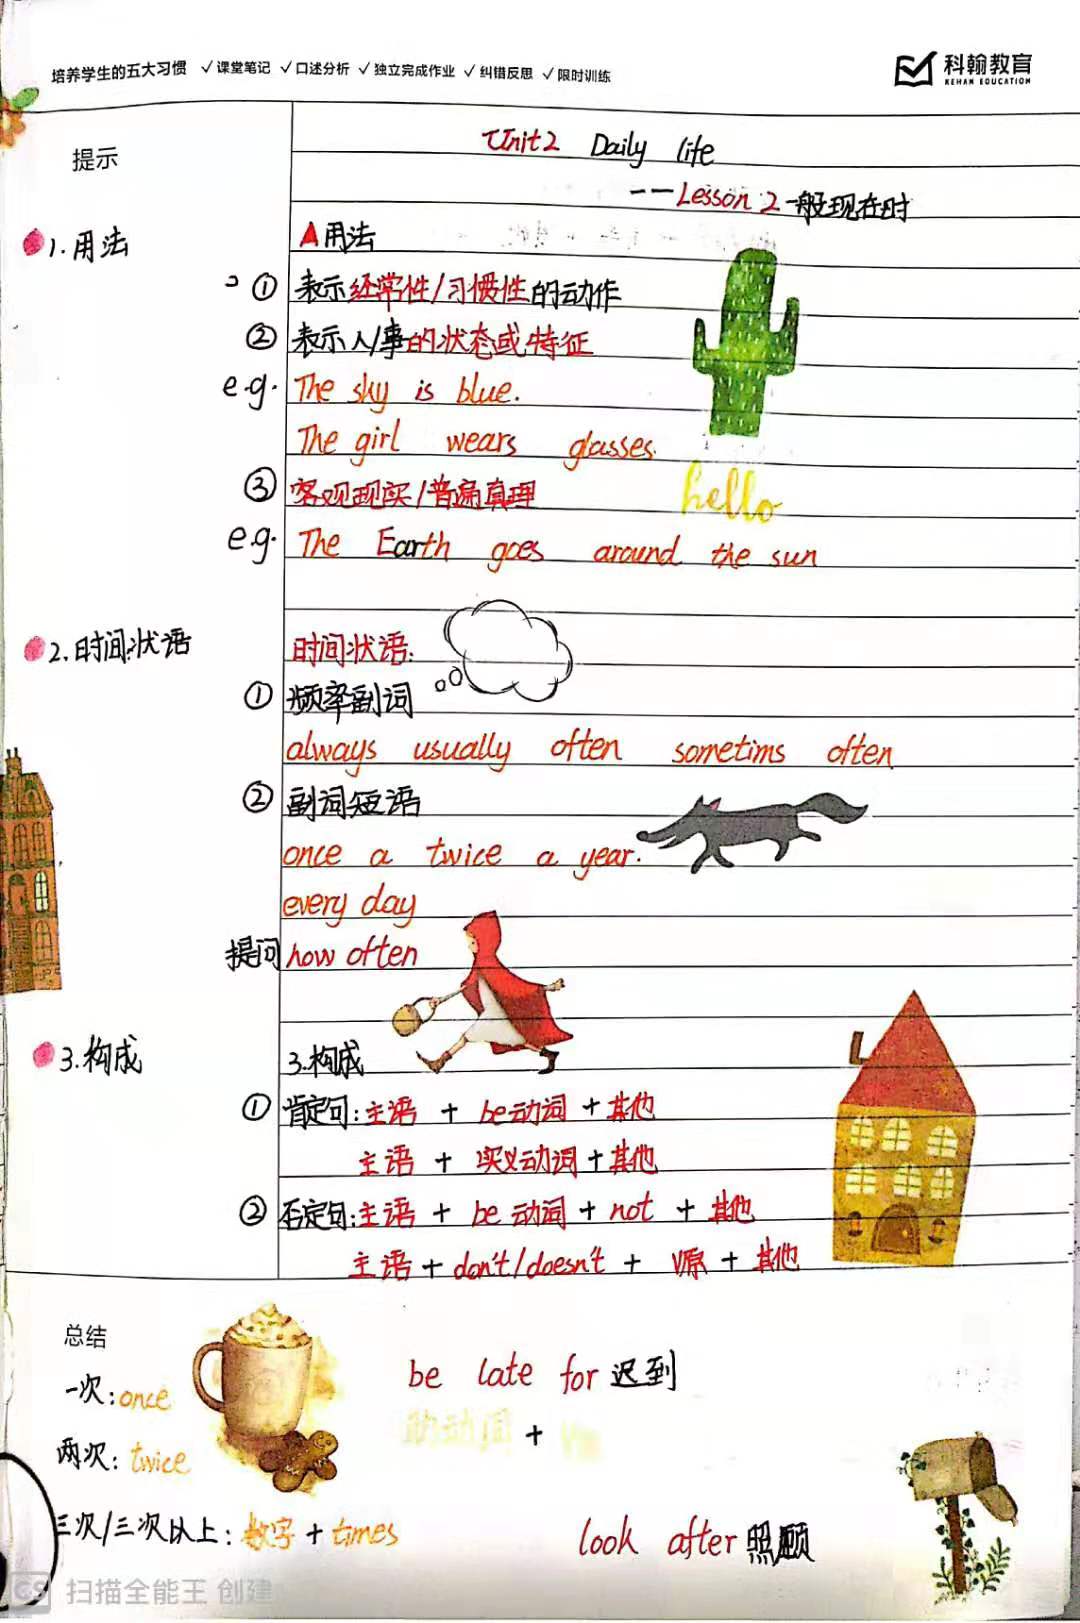 培养学生的五大习惯 ✓课堂笔记 ✓口述分析 ✓独立完成作业 ✓纠错反思 ✓限时训练
科翰教育
KEHAN EDUCATION
提示
Unit2 Daily life
--Lesson 2 一般现在时
1.用法
A用法
① 表示经常性/习惯性的动作
② 表示人/事的状态或特征
e.g. The sky is blue.
The girl wears glasses.
③ 客观现实/普遍真理
hello
e.g. The Earth goes around the sun
2.时间状语
时间状语:
① 频率副词
always usually often sometims often
② 副词短语
once a twice a year.
every day
提问 how often
3.构成
3.构成
① 肯定句:主语 + be动词 + 其他
主语 + 实义动词 + 其他
② 否定句:主语 + be动词 + not + 其他
主语 + don't/doesn't + V原 + 其他
总结
一次:once
be late for 迟到
助动词 +
两次: twice
三次/三次以上: 数字 + times
look after 照顾
CS 扫描全能王 创建